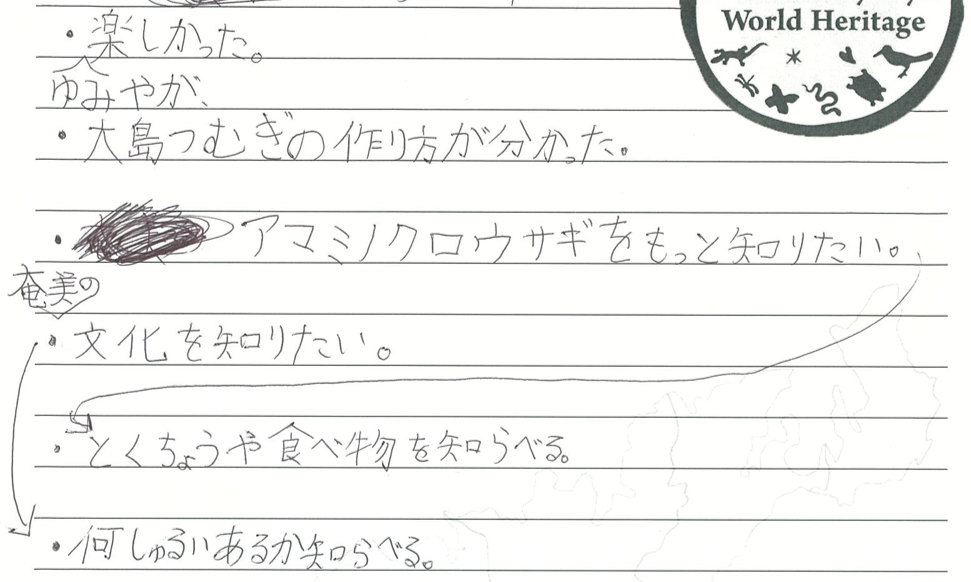 World Heritage
・楽しかった。
ゆみやが、
・大島つむぎの作り方が分かった。
・アマミノクロウサギをもっと知りたい。
奄美の
・文化を知りたい。
・とくちょうや食べ物を知らべる。
・何しゅるいあるか知らべる。